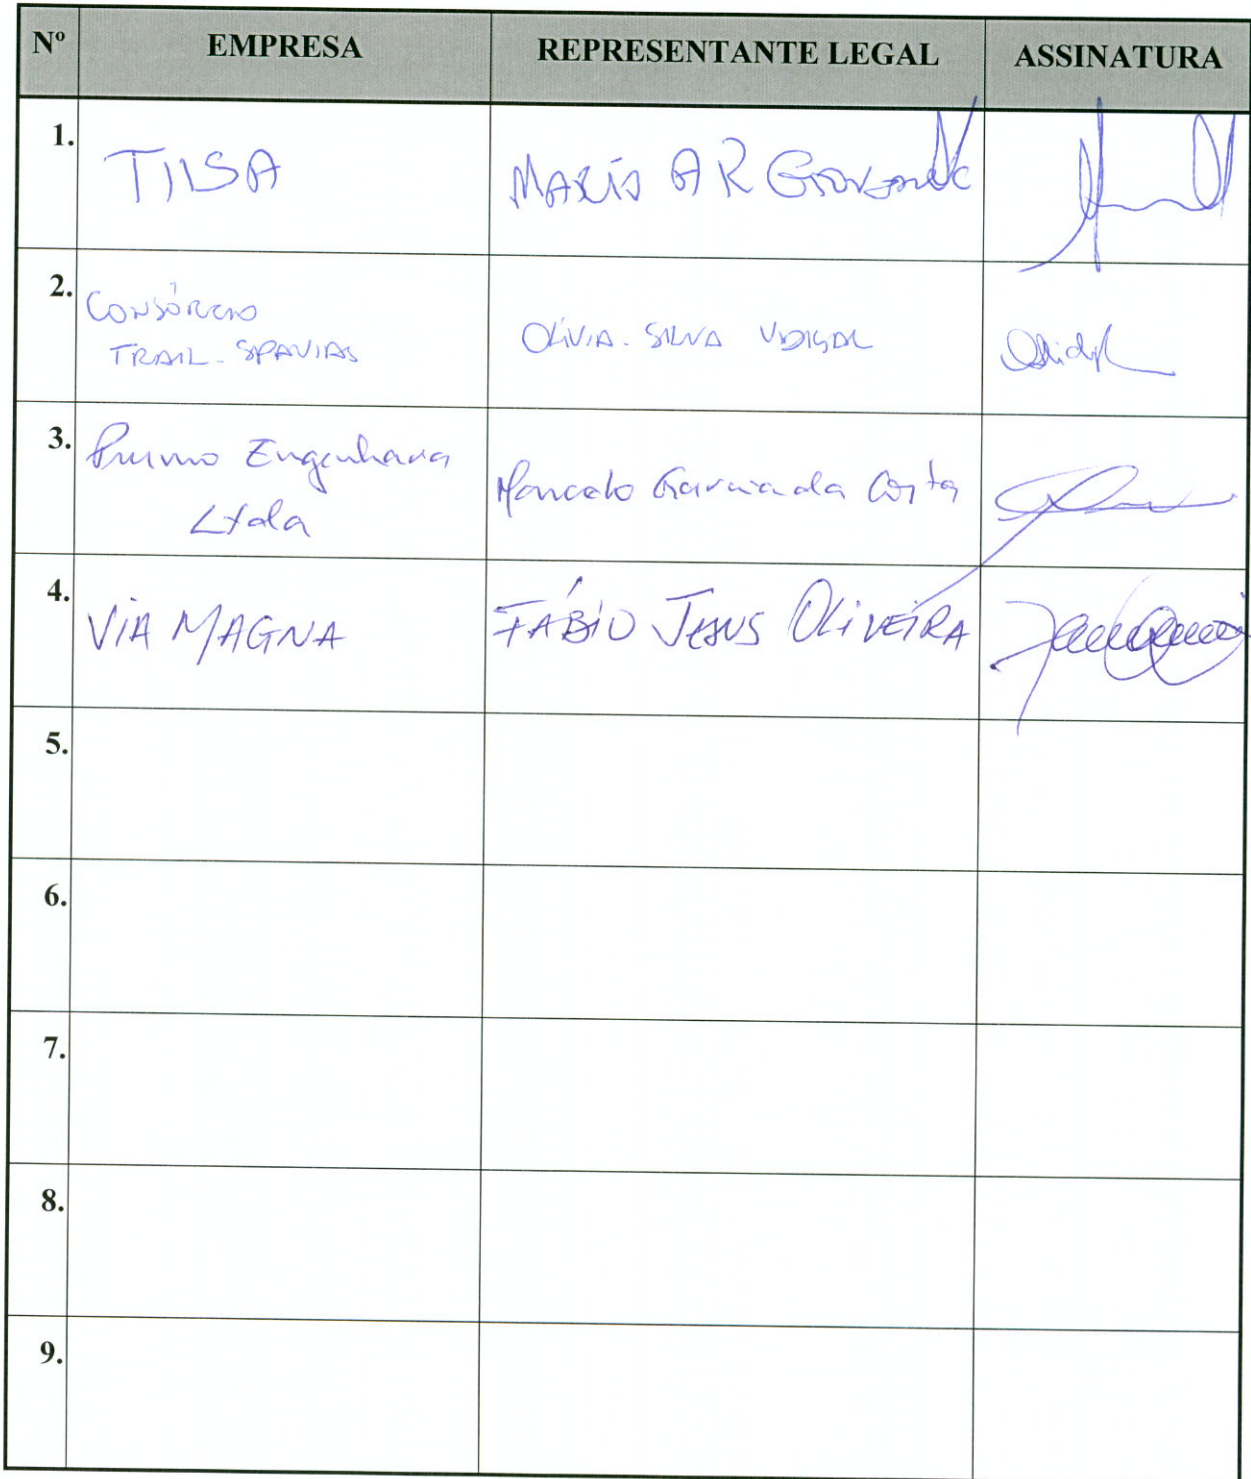 Nº EMPRESA REPRESENTANTE LEGAL ASSINATURA
1. TILSA MARIO A R
2. CONSÓRCIO
TRAIL-SPAVIAS OLIVIA SILVA VIDIGAL
3. Engenharia
Ltda Marcelo Garcia da Costa
4. VIA MAGNA FÁBIO JESUS OLIVEIRA
5.
6.
7.
8.
9.